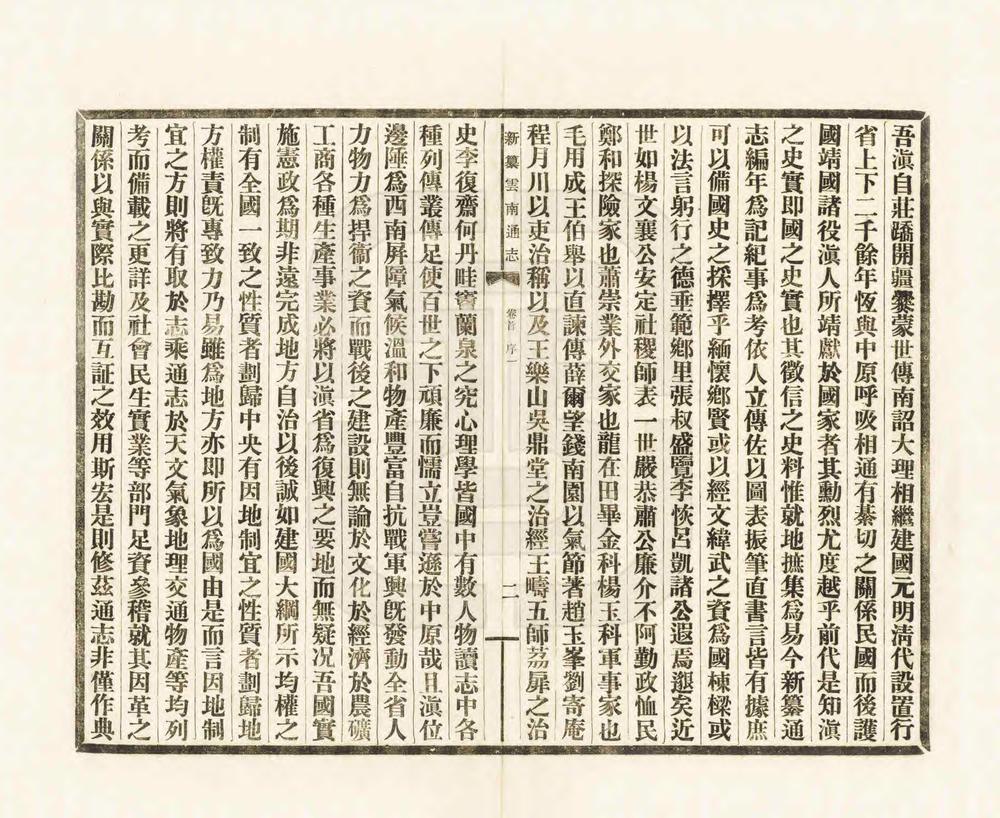 吾滇自莊蹻開疆爨蒙世傳南詔大理相繼建國元明淸代設置行
省上下二千餘年恆與中原呼吸相通有綦切之關係民國而後護
國靖國諸役滇人所靖獻於國家者其勳烈尤度越乎前代是知滇
之史實卽國之史實也其徵信之史料惟就地摭集爲易今新纂通
志編年爲記紀事爲考依人立傳佐以圖表振筆直書言皆有據庶
可以備國史之採擇乎緬懷鄕賢或以經文緯武之資爲國棟樑或
以法言躬行之德垂範鄕里張叔盛覽李恢呂凱諸公遐焉邈矣近
世如楊文襄公安定社稷師表一世嚴恭肅公廉介不阿勤政恤民
鄭和探險家也蕭崇業外交家也龍在田畢金科楊玉科軍事家也
毛用成王伯舉以直諫傳薛爾望錢南園以氣節著趙玉峯劉寄庵
程月川以吏治稱以及王樂山吳鼎堂之治經王疇五師荔扉之治
新纂雲南通志
卷首 序一
二
史李復齋何丹畦竇蘭泉之究心理學皆國中有數人物讀志中各
種列傳叢傳足使百世之下頑廉而懦立豈嘗遜於中原哉且滇位
邊陲爲西南屏障氣候溫和物產豐富自抗戰軍興旣發動全省人
力物力爲捍衞之資而戰後之建設則無論於文化於經濟於農礦
工商各種生產事業必將以滇省爲復興之要地而無疑况吾國實
施憲政爲期非遠完成地方自治以後誠如建國大綱所示均權之
制有全國一致之性質者劃歸中央有因地制宜之性質者劃歸地
方權責旣專致力乃易雖爲地方亦卽所以爲國由是而言因地制
宜之方則將有取於志乘通志於天文氣象地理交通物產等均列
考而備載之更詳及社會民生實業等部門足資參稽就其因革之
關係以與實際比勘而互証之效用斯宏是則修茲通志非僅作典